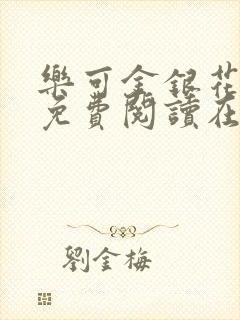 樂可金銀花
免費閱讀在
劉金梅